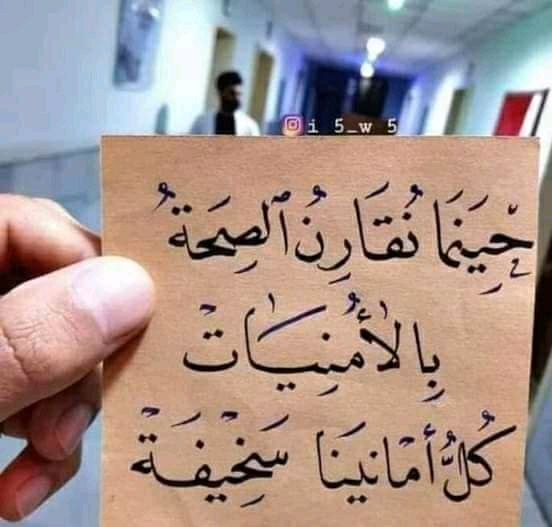 i_5_w_5
حِينَمَا نُقَارِنُ ٱلصِحَةُ
بِالأُمْنِيَات
كُلُّ أَمَانِينَا سَخِيفَة